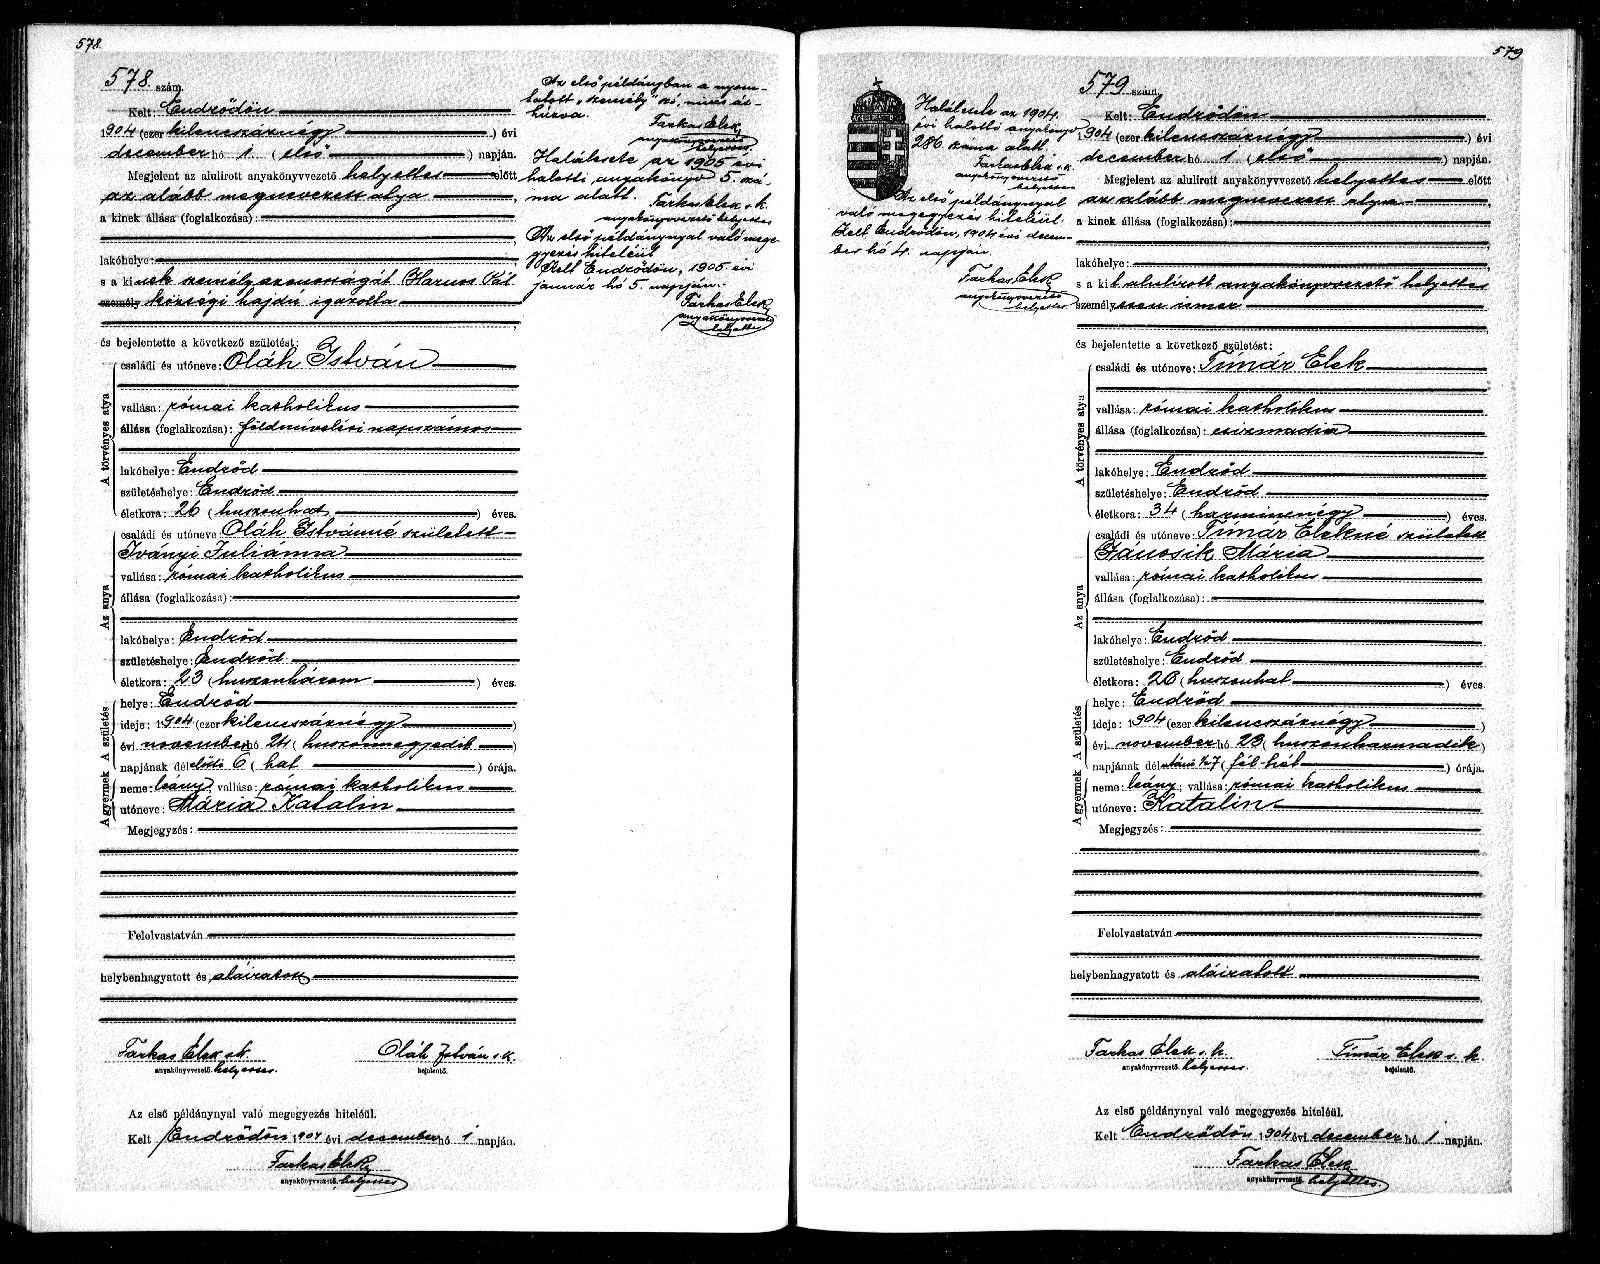 578.
578. szám.
Kelt: Endrődön
1904 (ezer kilencszáznégy) évi
december hó 1 (első) napján.
Megjelent az alulirott anyakönyvvezető helyettes előtt
az alább megnevezett atya,
a kinek állása (foglalkozása):
lakóhelye:
s a kinek személyazonosságát Harnos Pál
személy községi hajdú igazolta
és bejelentette a következő születést:
A törvényes atya
családi és utóneve: Oláh István
vallása: római katholikus
állása (foglalkozása): földmívelési napszámos
lakóhelye: Endrőd
születéshelye: Endrőd
életkora: 26 (huszonhat) éves.
Az anya
családi és utóneve: Oláh Istvánné született
Iványi Juliánna
vallása: római katholikus
állása (foglalkozása):
lakóhelye: Endrőd
születéshelye: Endrőd
életkora: 23 (huszonhárom) éves.
A születés
helye: Endrőd
ideje: 1904 (ezer kilencszáznégy)
évi november hó 24 (huszonnegyedik)
napjának délelőtti 6 (hat) órája.
A gyermek
neme: leány; vallása: római katholikus
utóneve: Mária Katalin
Megjegyzés:
Felolvastatván
helybenhagyatott és aláíratott
Farkas Elek s.k. Oláh István s.k.
anyakönyvvezető. helyettes. bejelentő.
Az első példánynyal való megegyezés hiteléül.
Kelt Endrődön 1904 évi december hó 1 napján.
Farkas Elek
anyakönyvvezető. helyettes
Az első példányban a nyom-
tatott „személy" szó, nincs át-
húzva.
Farkas Elek
anyakönyvvezető
helyettes.
Halálesete az 1905 évi
halotti anyakönyv 5. szá-
ma alatt.
Farkas Elek s.k.
anyakönyvvezető helyettes
Az első példánynyal való mege-
gyezés hiteléül
Kelt Endrődön, 1905 évi
január hó 5. napján.
Farkas Elek
anyakönyvvezető
helyettes
579
Halálesete az 1904.
évi halotti anyakönyv
286. száma alatt.
Farkas Elek s.k.
anyakönyvvezető
helyettes
Az első példánynyal
való megegyezés hiteléül.
Kelt Endrődön, 1904 évi decem-
ber hó 4. napján.
Farkas Elek
anyakönyvvezető
helyettes
579. szám.
Kelt: Endrődön
1904 (ezer kilencszáznégy) évi
december hó 1 (első) napján.
Megjelent az alulirott anyakönyvvezető helyettes előtt
az alább megnevezett atya,
a kinek állása (foglalkozása):
lakóhelye:
s a kit alulírott anyakönyvvezető helyettes
személyesen ismer
és bejelentette a következő születést:
A törvényes atya
családi és utóneve: Tímár Elek
vallása: római katholikus
állása (foglalkozása): csizmadia
lakóhelye: Endrőd
születéshelye: Endrőd
életkora: 34 (harmincnégy) éves.
Az anya
családi és utóneve: Tímár Elekné született
Jánosik Mária
vallása: római katholikus
állása (foglalkozása):
lakóhelye: Endrőd
születéshelye: Endrőd
életkora: 26 (huszonhat) éves.
A születés
helye: Endrőd
ideje: 1904 (ezer kilencszáznégy)
évi november hó 23 (huszonharmadik)
napjának délutáni ½7 (fél hét) órája.
A gyermek
neme: leány; vallása: római katholikus
utóneve: Katalin
Megjegyzés:
Felolvastatván
helybenhagyatott és aláíratott
Farkas Elek s.k. Tímár Elek s.k.
anyakönyvvezető. helyettes. bejelentő.
Az első példánynyal való megegyezés hiteléül.
Kelt Endrődön 1904 évi december hó 1 napján.
Farkas Elek
anyakönyvvezető. helyettes.